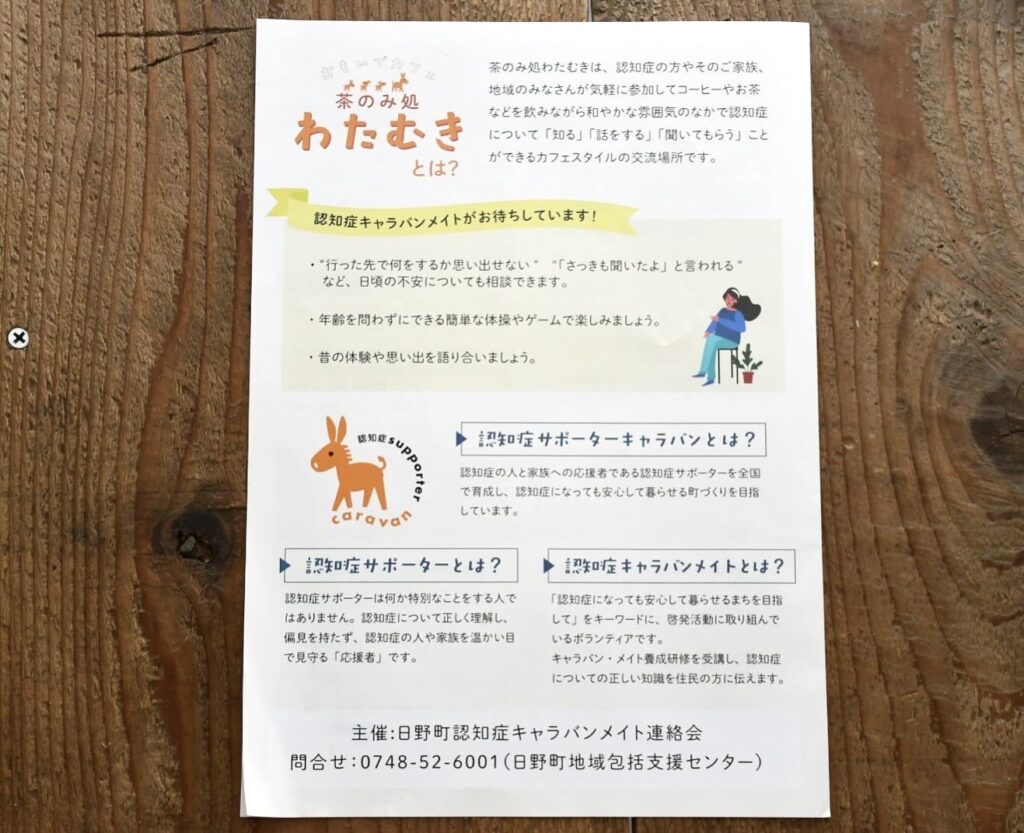 おもいでカフェ
茶のみ処
わたむき
とは?
茶のみ処わたむきは、認知症の方やそのご家族、
地域のみなさんが気軽に参加してコーヒーやお茶
などを飲みながら和やかな雰囲気のなかで認知症
について「知る」「話をする」「聞いてもらう」こと
ができるカフェスタイルの交流場所です。
認知症キャラバンメイトがお待ちしています!
・“行った先で何をするか思い出せない” “「さっきも聞いたよ」と言われる”
など、日頃の不安についても相談できます。
・年齢を問わずにできる簡単な体操やゲームで楽しみましょう。
・昔の体験や思い出を語り合いましょう。
認知症supporter
caravan
認知症サポーターキャラバンとは?
認知症の人と家族への応援者である認知症サポーターを全国
で育成し、認知症になっても安心して暮らせる町づくりを目指
しています。
認知症サポーターとは?
認知症サポーターは何か特別なことをする人で
はありません。認知症について正しく理解し、
偏見を持たず、認知症の人や家族を温かい目
で見守る「応援者」です。
認知症キャラバンメイトとは?
「認知症になっても安心して暮らせるまちを目指
して」をキーワードに、啓発活動に取り組んで
いるボランティアです。
キャラバン・メイト養成研修を受講し、認知症
についての正しい知識を住民の方に伝えます。
主催:日野町認知症キャラバンメイト連絡会
問合せ:0748-52-6001(日野町地域包括支援センター)